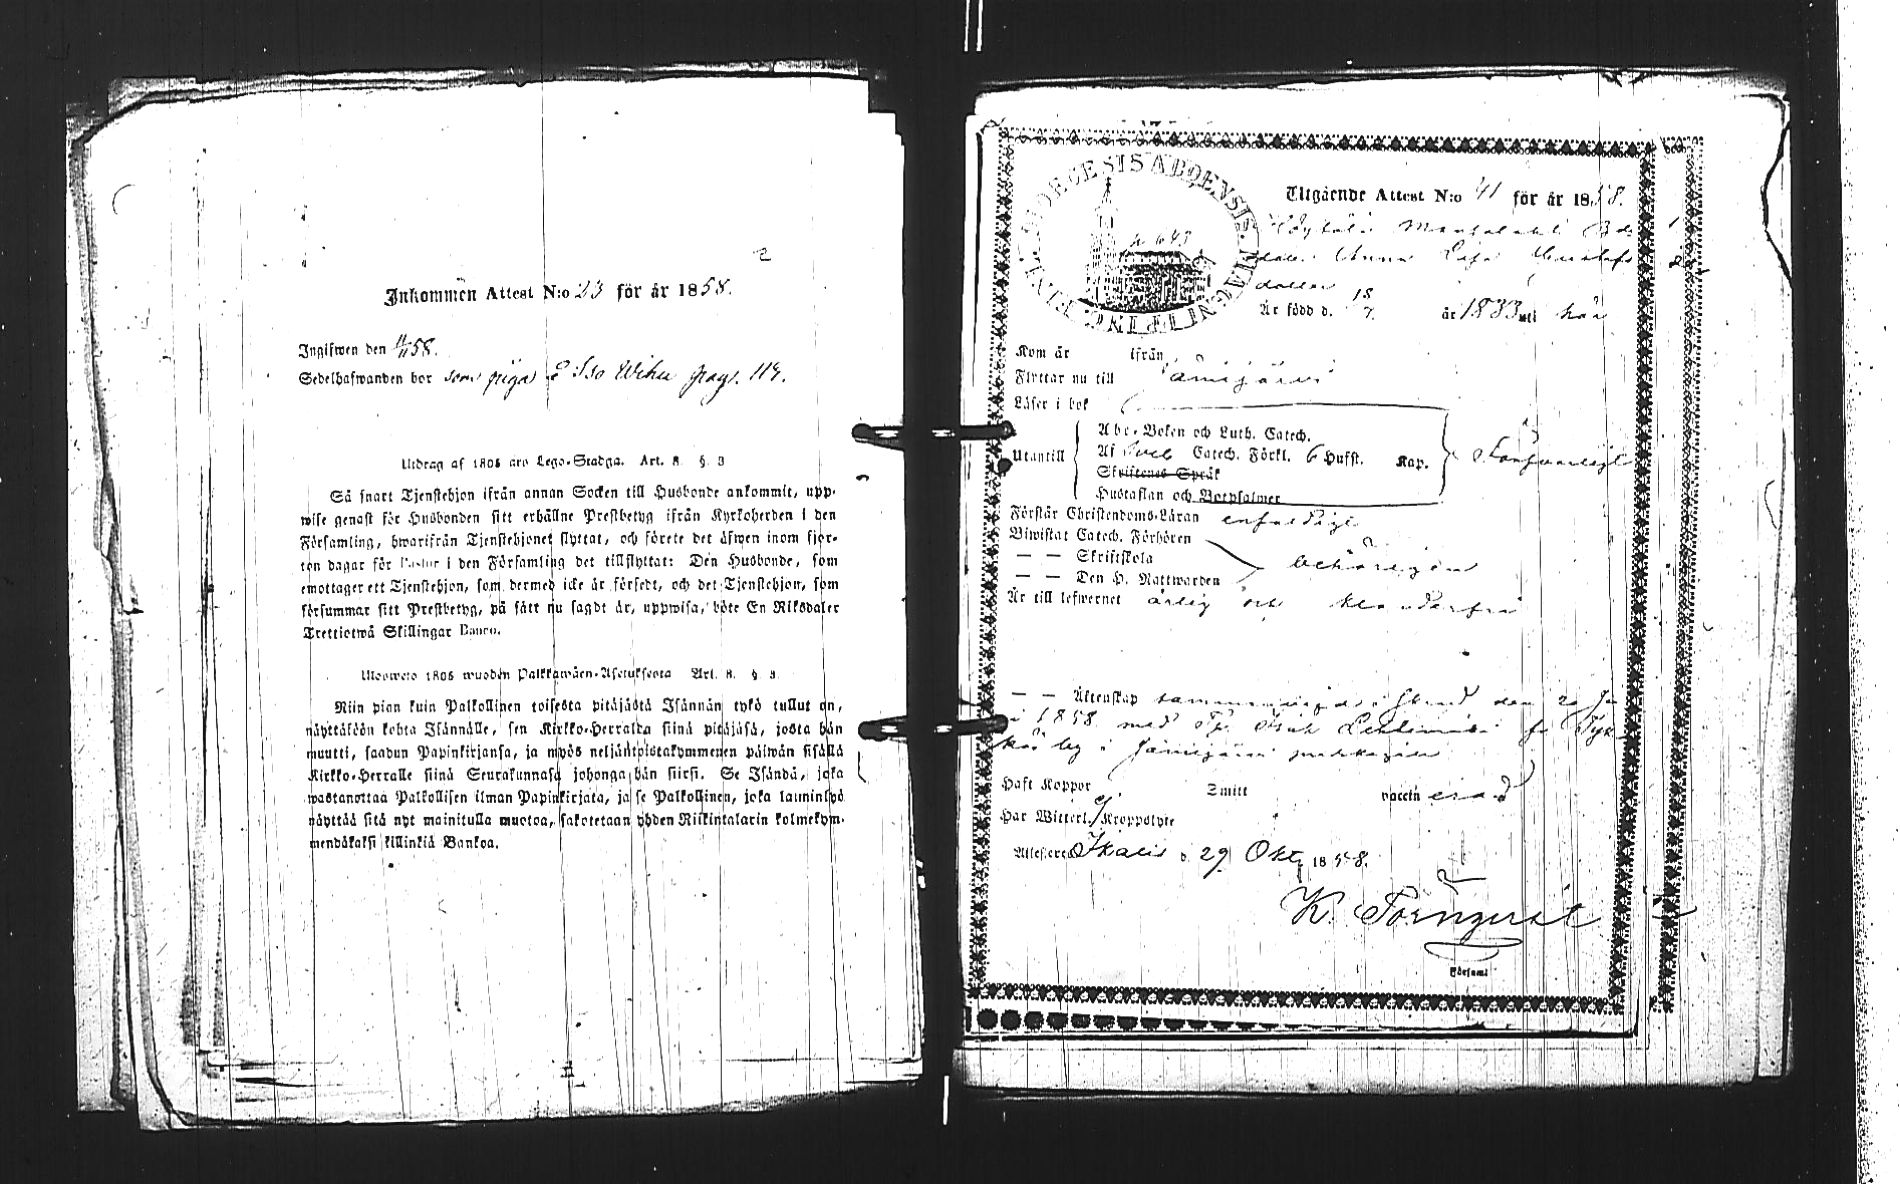 2
Inkommen Attest N:o 23 för år 1858.
Ingifwen den 11/11 58.
Sedelhafwanden bor som piga å Iso Wihu pag. 114.
Utdrag af 1805 års Lego-Stadga. Art. 8. §. 3
Så snart Tjenstehjon ifrån annan Socken till Husbonde ankommit, upp-
wise genast för Husbonden sitt erhållne Prestbetyg ifrån Kyrkoherden i den
Församling, hwarifrån Tjenstehjonet flyttat, och förete det äfwen inom fjor-
ton dagar för Pastor i den Församling det tillflyttat: Den Husbonde, som
emottager ett Tjenstehjon, som dermed icke är försedt, och det Tjenstehjon, som
försummar sitt Prestbetyg, på sätt nu sagdt är, uppwisa, böte En Riksdaler
Trettiotwå Skillingar Banco.
Ulosweto 1805 wuoden Palkkawäen-Asetuksesta Art. 8. §. 3.
Niin pian kuin Palkollinen toisesta pitäjästä Isännän tykö tullut on,
näyttäköön kohta Isännälle, sen Kirkko-Herralta siinä pitäjäsä, josta hän
muutti, saadun Papinkirjansa, ja myös neljäntoistakymmenen päiwän sisällä
Kirkko-Herralle siinä Seurakunnasa johonga hän siirsi. Se Isändä, joka
wastanottaa Palkollisen ilman Papinkirjata, ja se Palkollinen, joka lauminlyö
näyttää sitä nyt mainitulla muotoa, sakotetaan yhden Riikintalarin kolmekym-
mendäkaksi killinkiä Bankoa.
DIOECESIS ABOENSIS. MAGNI PRINC. FINL.
Utgående Attest N:o 41 för år 1858.
Anna Lisa
dotter
Är född d. 18/7. år 1833 uti här
Kom år ifrån
Flyttar nu till Jämijärvi
Läser i bok
Utantill
Abc-Boken och Luth. Catech.
Af Catech. Förkl. 6 Hufst. Kap.
Skriftenes Språk
Hustaflan och Botpsalmer
Förstår Christendoms-Läran enfaldigt
Biwistat Catech. Förhören
— — Skriftskola
— — Den H. Nattwarden
behörigen
Är till lefwernet ärlig och klanderfri
— — Äktenskap
1858 med
i Jämijärvi
Haft Koppor Smitt vaccin erad
Har Witterl. Kroppslyte ej
Attesteras Ikalis d. 29 Okt. 1858.
K. Törnqvist
Församl